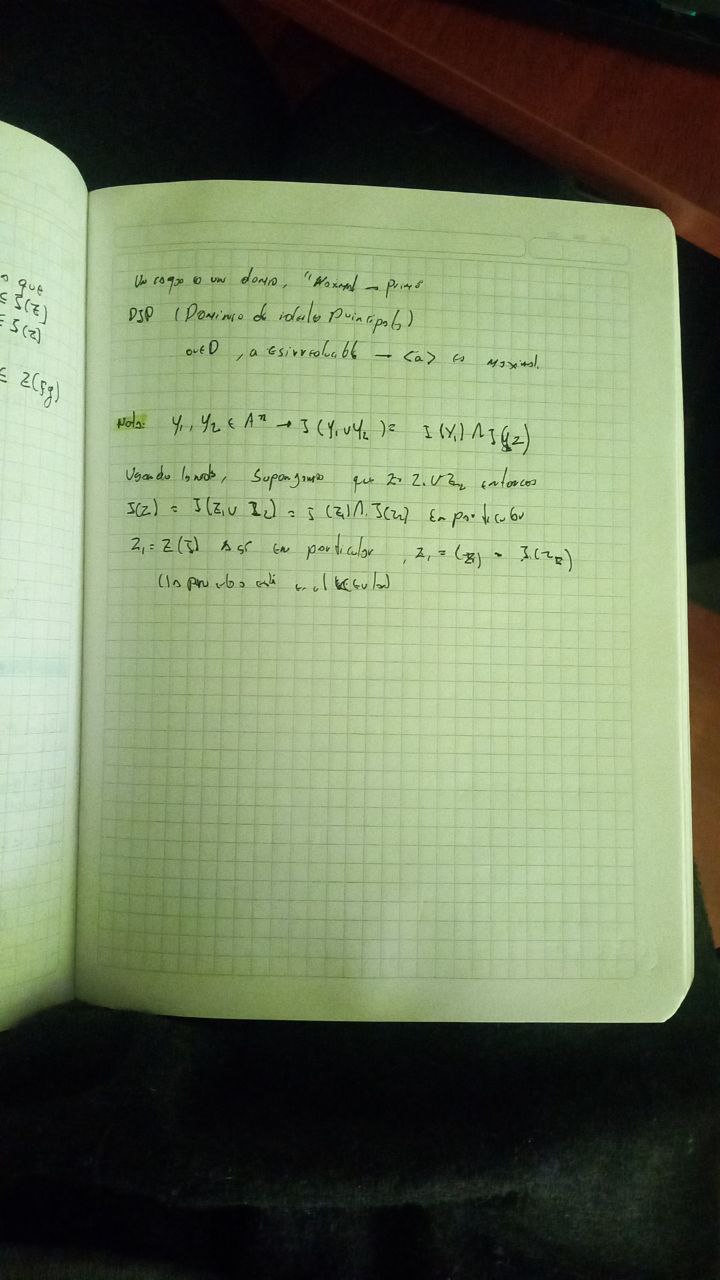 que
∈ J(Z)
∈ J(Z)
∈ Z(fg)
Un es un , "Maximal → primo
DIP (Dominio de ideales Principales)
a∈D, a es irreducible → <a> es maximal.
Nota: Y₁, Y₂ ∈ Aⁿ → J(Y₁∪Y₂) = J(Y₁) ∩ J(Y2)
Usando la nota, Supongamos que Z = Z₁∪Z₂ entonces
J(Z) = J(Z₁∪Z₂) = J(Z₁)∩J(Z₂) En particular
Z₁ = Z(J) Así en particular, Z₁ =
(la prueba está en el